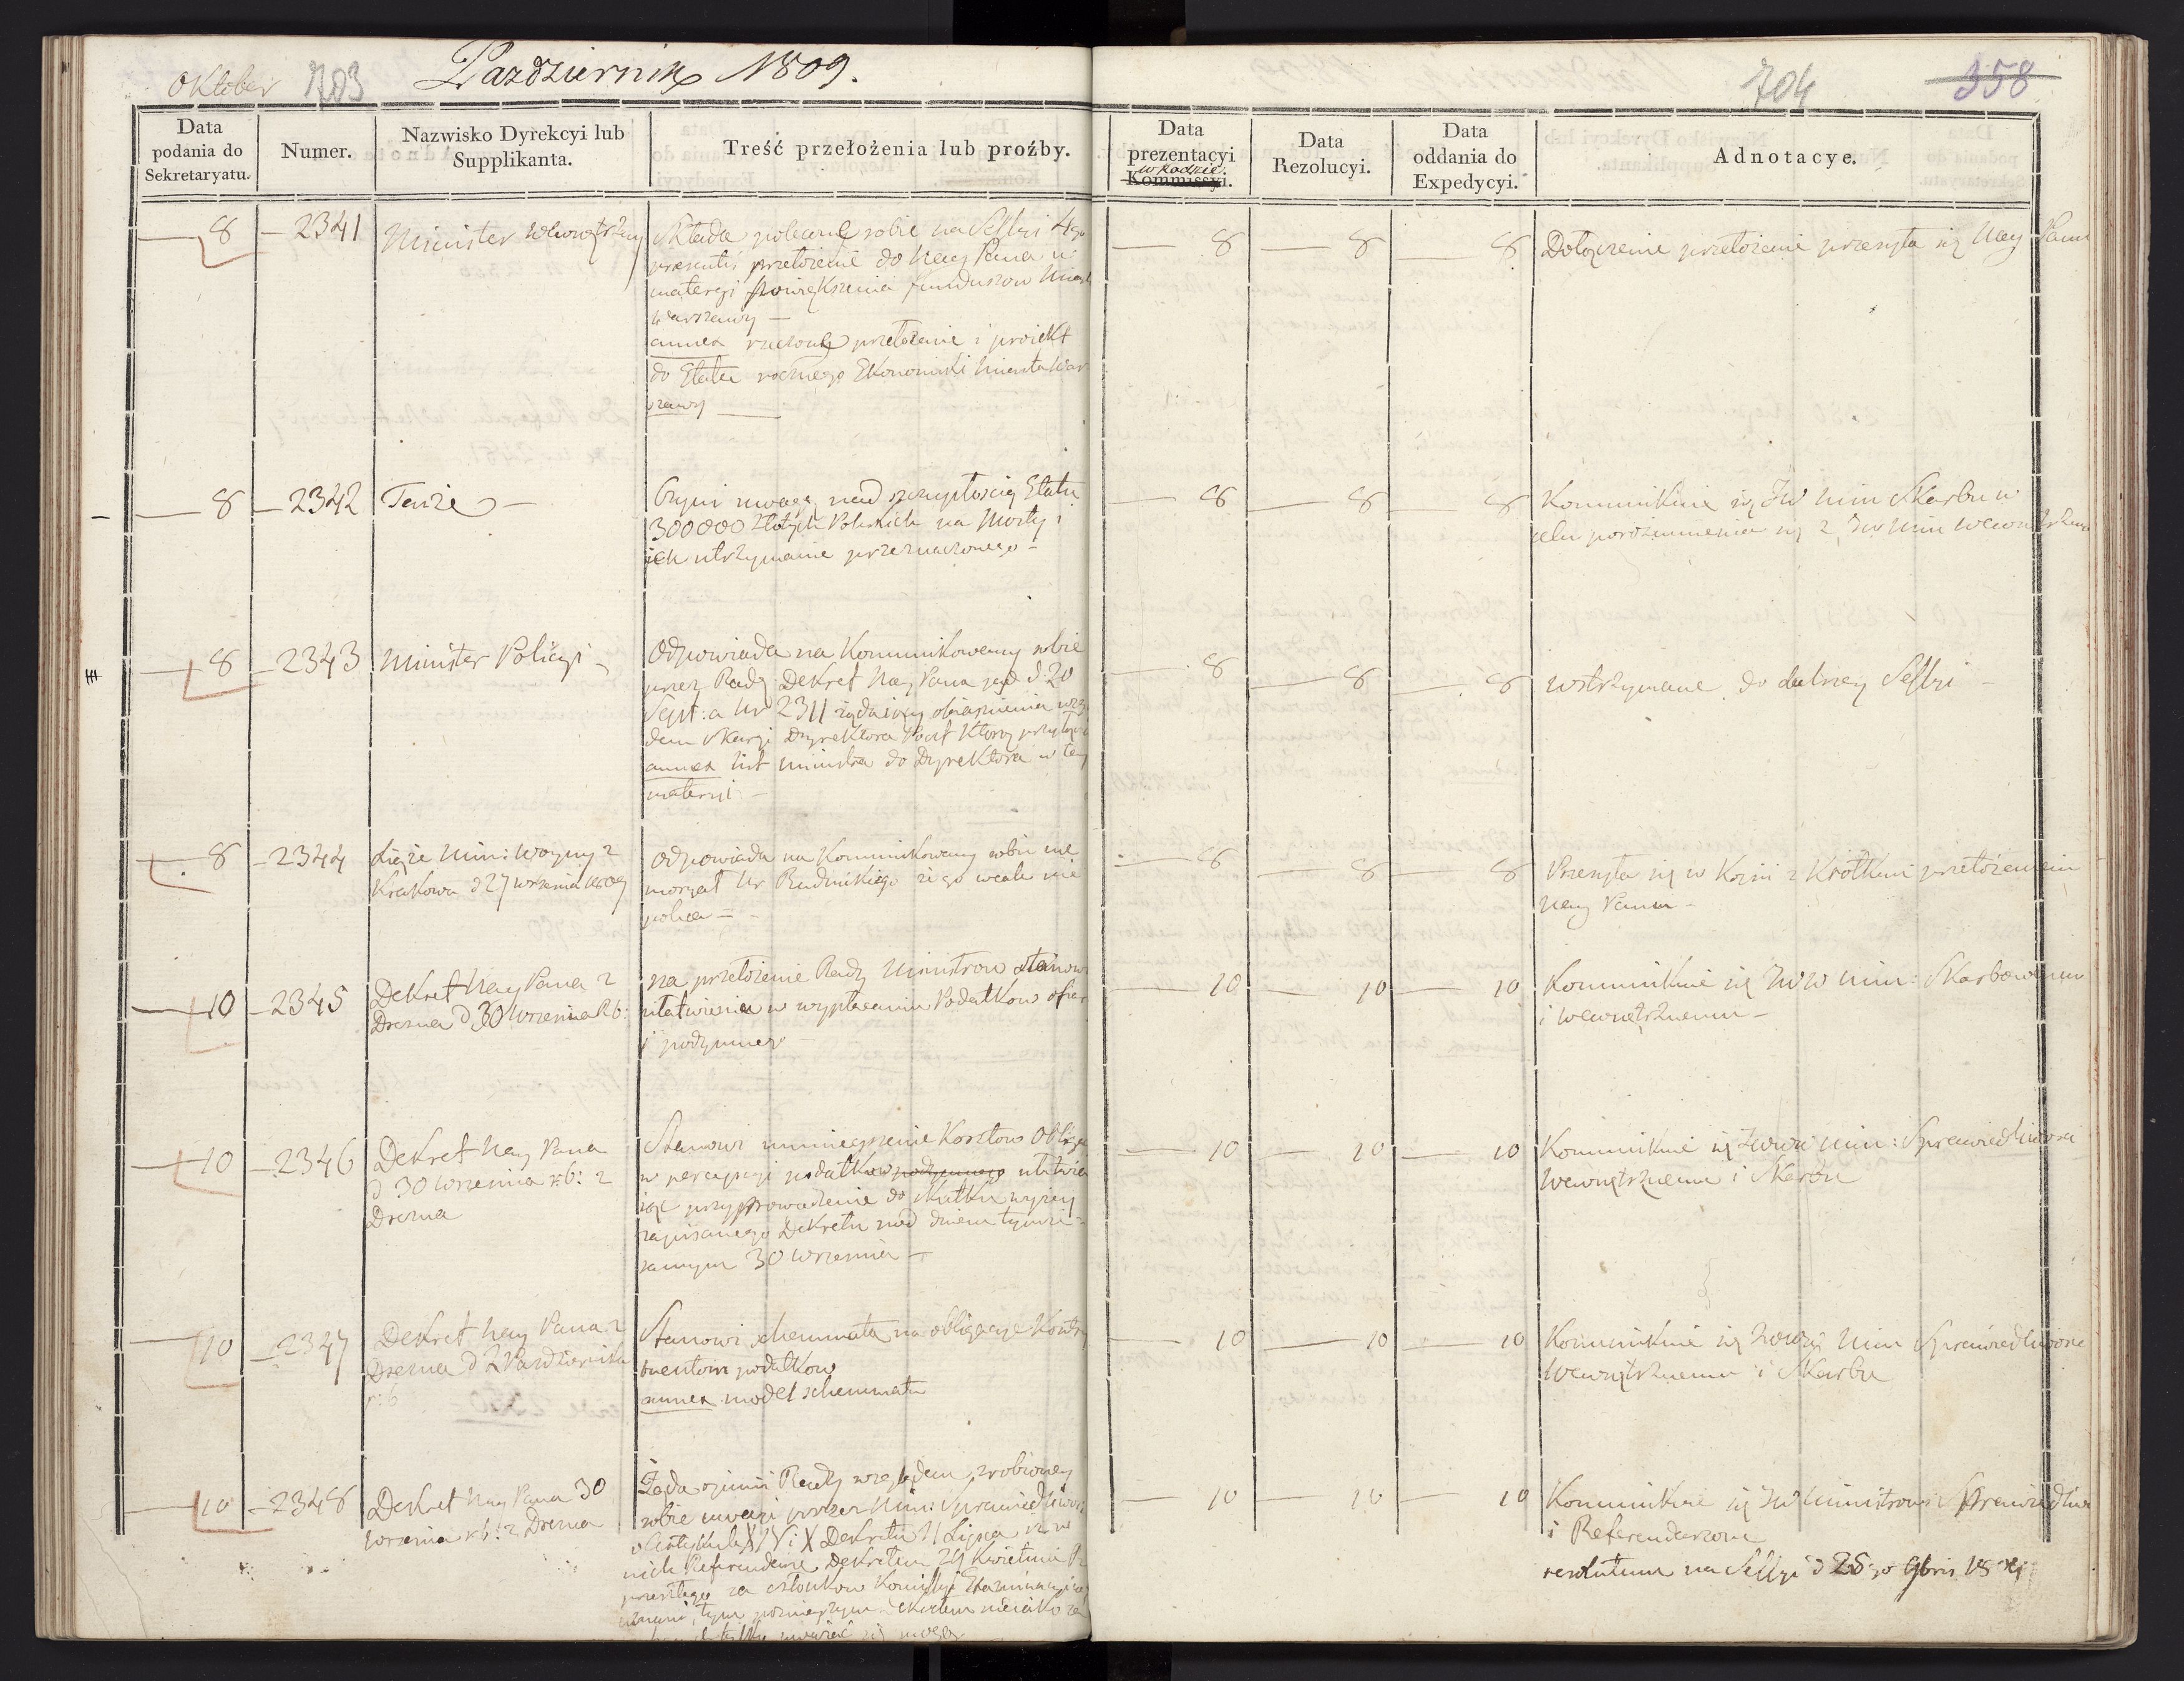 Oktober 703 Pazdziernik 1809.
704 358
Data podania do Sekretaryatu.
Numer.
Nazwisko Dyrekcyi lub Supplikanta.
Treść przełożenia lub proźby.
Data prezentacyi w Radzie. Kommissyi.
Data Rezolucyi.
Data oddania do Expedycyi.
Adnotacye.
8 2341 Minister Wewnętrzny
Składa polecone sobie na Sessyi 4go
presentis przełożenie do Nay Pana w
materyi powiększenia funduszow Miasta
Warszawy
annex rzeczone przełożenie i proiekt
do Etatu rocznego Ekonomiki Miasta War
szawy
8 8 8
Dołączenie przełożenie przesyła się Nay Panu
8 2342 Tenże
Czyni uwagę nad szczupłością Etatu
300000 Złotych Polskich na Mosty i
ich utrzymanie przeznaczonego
8 8 8
Kommunikuie się JW Min Skarbu w
celu porozumienia się z JW Min Wewnętrznym
8 2343 Minister Policyi
Odpowiada na Kommunikowany sobie
przez Radę Dekret Nay Pana pod d 20
Sept: a Nr 2311 żądaiący obiaśnienia wzglę
dem skargi Dyrektora Poczt który przyłącza
annex list ministra do Dyrektora w tey
materyi
8 8 8
wstrzymane do dalszey Sessyi
8 2344 Xiąże Min: Woyny z
Krakowa d 27 września 1809
Odpowiada na Kommunikowany sobie me
moryał Ur Rudnickiego że go wcale nie
poleca
8 8 8
Przesyła się w Kopii z Krótkim przełożeniem
Nay Panu
10 2345 Dekret Nay Pana z
Drezna d 30 Września R b:
na przełożenie Rady Ministrow stanowi
ułatwienia w wypłacaniu Podatkow ofiar
i podymnego
10 10 10
Kommunikuie się JWW Min: Skarbowemu
i Wewnętrznemu
10 2346 Dekret Nay Pana
d 30 Września r: b: z
Drezna
Stanowi umnieyszenie Kosztow
w percepcyi podatkow podymnego ułatwia
iąc przyprowadzenie do skutku wyżey
zapisanego Dekretu pod dniem tymże
samym 30 Września
10 10 10
Kommunikuie się Min: Sprawiedliwości
Wewnętrznemu i Skarbu
10 2347 Dekret Nay Pana z
Drezna d 2 Pazdziernika
r: b
Stanowi schemmata na obligacye Kontry
buentom podatkow
annex model schemmatu
10 10 10
Kommunikuie się Min Sprawiedliwości
Wewnętrznemu i Skarbu
10 2348 Dekret Nay Pana 30
Września r b: z Drezna
Żąda opinii Rady względem zrobioney
sobie uwagi przez Min: Sprawiedliwości
Dekretu 11 Lipca iż w
nich Referendarze Dekretem 24 Kwietnia
przeszłego za członkow Komissyi Examinacyiney
uznani, tym poźnieyszym Dekretem
uważać się mogą
10 10 10
Kommunikuie się JW Ministrowi Sprawiedliwo
i Referendarzom
resolutum na Sessyi d 28go 9bris